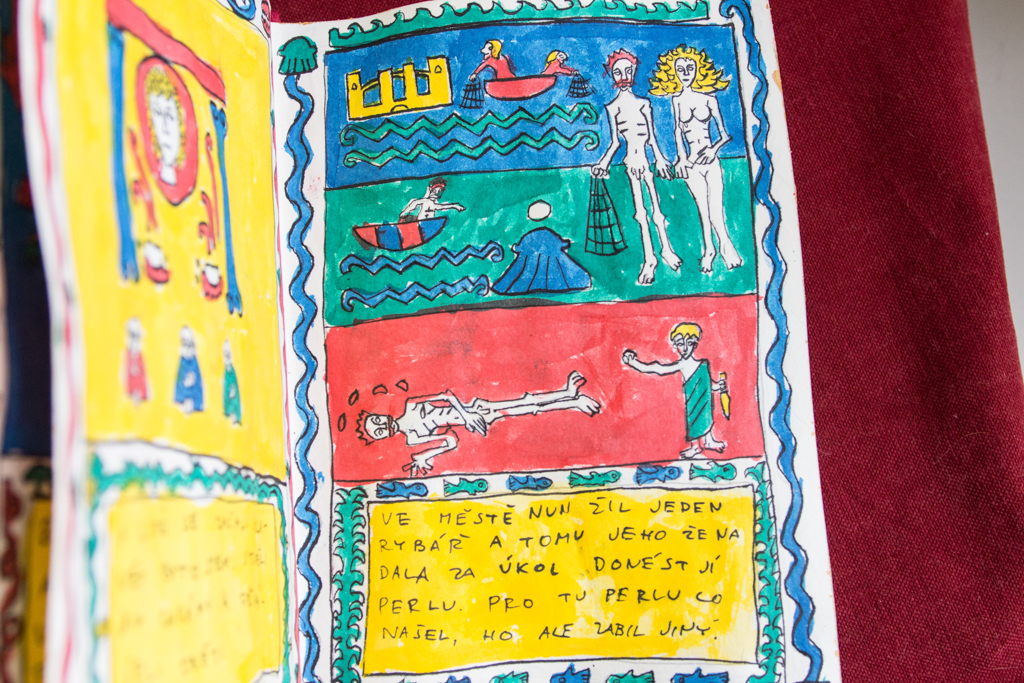 VE MĚSTĚ NUN ŽIL JEDEN
RYBÁŘ A TOMU JEHO ŽENA
DALA ZA ÚKOL DONÉST JÍ
PERLU. PRO TU PERLU CO
NAŠEL, HO ALE ZABIL JINÝ.